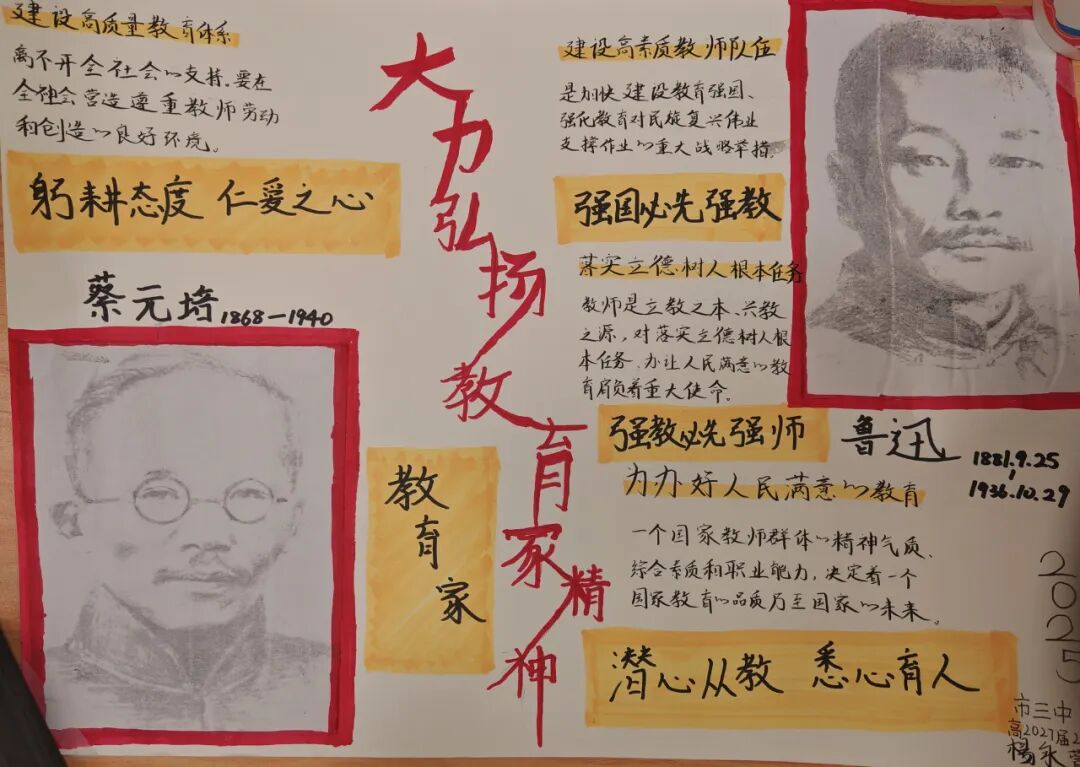 建设高质量教育体系
离不开全社会的支持,要在
全社会营造遵重教师劳动
和创造的良好环境。
躬耕态度 仁爱之心
蔡元培 1868—1940
教育家
大力弘扬教育家精神
建设高素质教师队伍
是加快建设教育强国、
强化教育对民族复兴伟业
支撑作业的重大战略举措。
强国必先强教
落实立德.树人根本任务
教师是立教之本、兴教
之源,对落实立德树人根
本任务,办让人民满意的教
育肩负着重大使命。
强教必先强师
鲁迅 1881.9.25
1936.10.29
力办好人民满意的教育
一个国家教师群体的精神气质、
综合素质和职业能力,决定着一个
国家教育的品质乃至国家的未来。
潜心从教 悉心育人
2025
市三中
高2027届